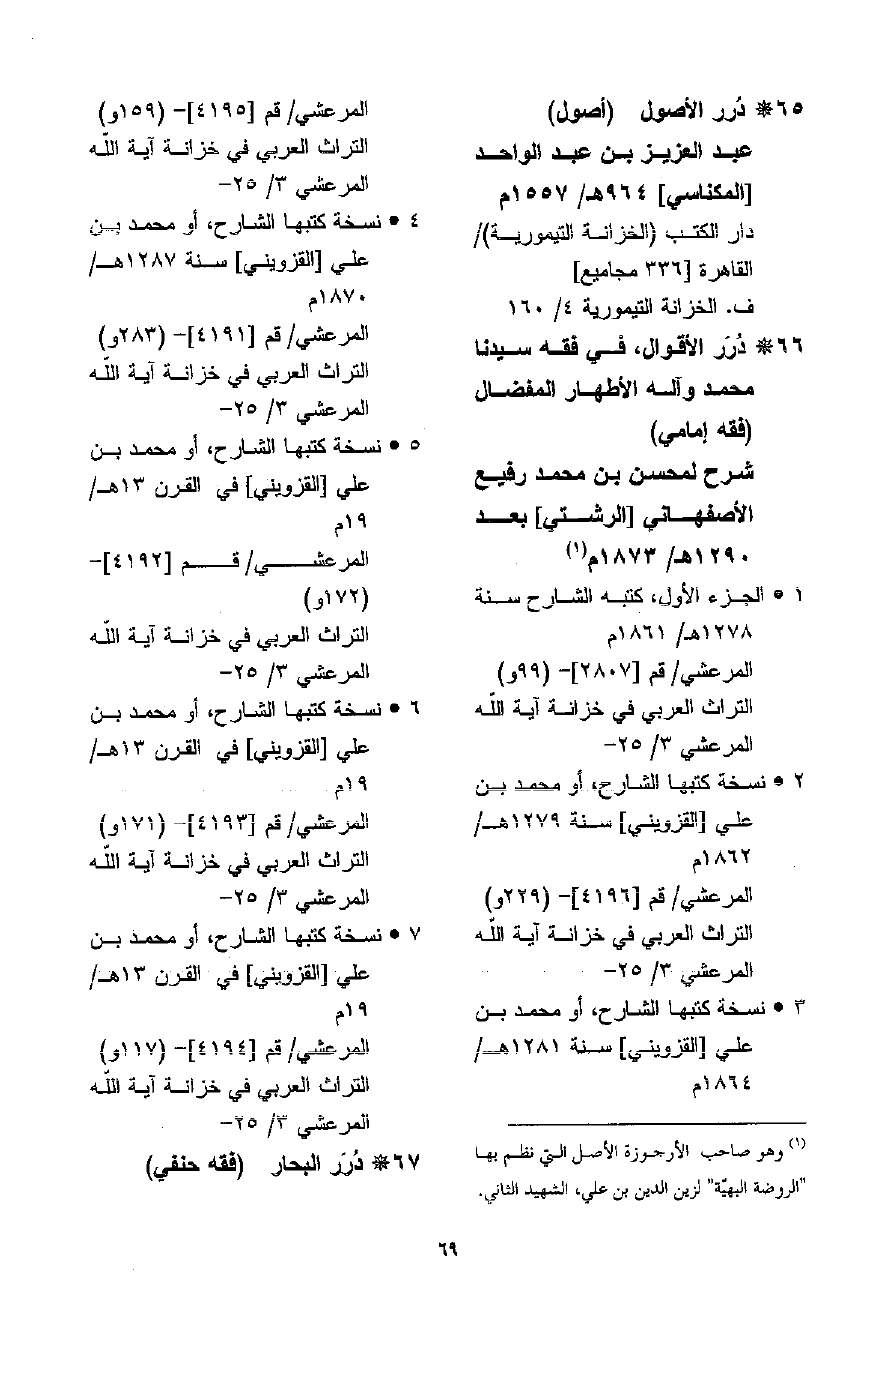 ٦٥ * دُرر الأصول (أصول)
عبد العزيز بن عبد الواحد
[المكناسي] ٩٦٤هـ/ ١٥٥٧م
دار الكتب (الخزانة التيمورية)/
القاهرة [٣٣٦ مجاميع]
ف. الخزانة التيمورية ٤/ ١٦٠
٦٦ * دُرَر الأقوال، في فقه سيدنا
محمد وآله الأطهار المفضال
(فقه إمامي)
شرح لمحسن بن محمد رفيع
الأصفهاني [الرشتي] بعد
١٢٩٠هـ/ ١٨٧٣م(١)
١ • الجزء الأول، كتبه الشارح سنة
١٢٧٨هـ/ ١٨٦١م
المرعشي/ قم [٢٨٠٧]- (٩٩و)
التراث العربي في خزانة آية اللّه
المرعشي ٣/ ٢٥-
٢ • نسخة كتبها الشارح، أو محمد بن
علي [القزويني] سنة ١٢٧٩هـ/
١٨٦٢م
المرعشي/ قم [٤١٩٦]- (٢٢٩و)
التراث العربي في خزانة آية اللّه
المرعشي ٣/ ٢٥-
٣ • نسخة كتبها الشارح، أو محمد بن
علي [القزويني] سنة ١٢٨١هـ/
١٨٦٤م
(١) وهو صاحب الأرجوزة الأصل التي نظم بها
"الروضة البهيّة" لزين الدين بن علي، الشهيد الثاني.
المرعشي/ قم [٤١٩٥]- (١٥٩و)
التراث العربي في خزانة آية اللّه
المرعشي ٣/ ٢٥-
٤ • نسخة كتبها الشارح، أو محمد بن
علي [القزويني] سنة ١٢٨٧هـ/
١٨٧٠م
المرعشي/ قم [٤١٩١]- (٢٨٣و)
التراث العربي في خزانة آية اللّه
المرعشي ٣/ ٢٥-
٥ • نسخة كتبها الشارح، أو محمد بن
علي [القزويني] في القرن ١٣هـ/
١٩م
المرعشي/ قم [٤١٩٢]-
(١٧٢و)
التراث العربي في خزانة آية اللّه
المرعشي ٣/ ٢٥-
٦ • نسخة كتبها الشارح، أو محمد بن
علي [القزويني] في القرن ١٣هـ/
١٩م
المرعشي/ قم [٤١٩٣]- (١٧١و)
التراث العربي في خزانة آية اللّه
المرعشي ٣/ ٢٥-
٧ • نسخة كتبها الشارح، أو محمد بن
علي [القزويني] في القرن ١٣هـ/
١٩م
المرعشي/ قم [٤١٩٤]- (١١٧و)
التراث العربي في خزانة آية اللّه
المرعشي ٣/ ٢٥-
٦٧ * دُرَر البحار (فقه حنفي)
٦٩